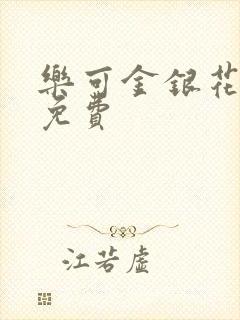 樂可金銀花
免費
江若虛